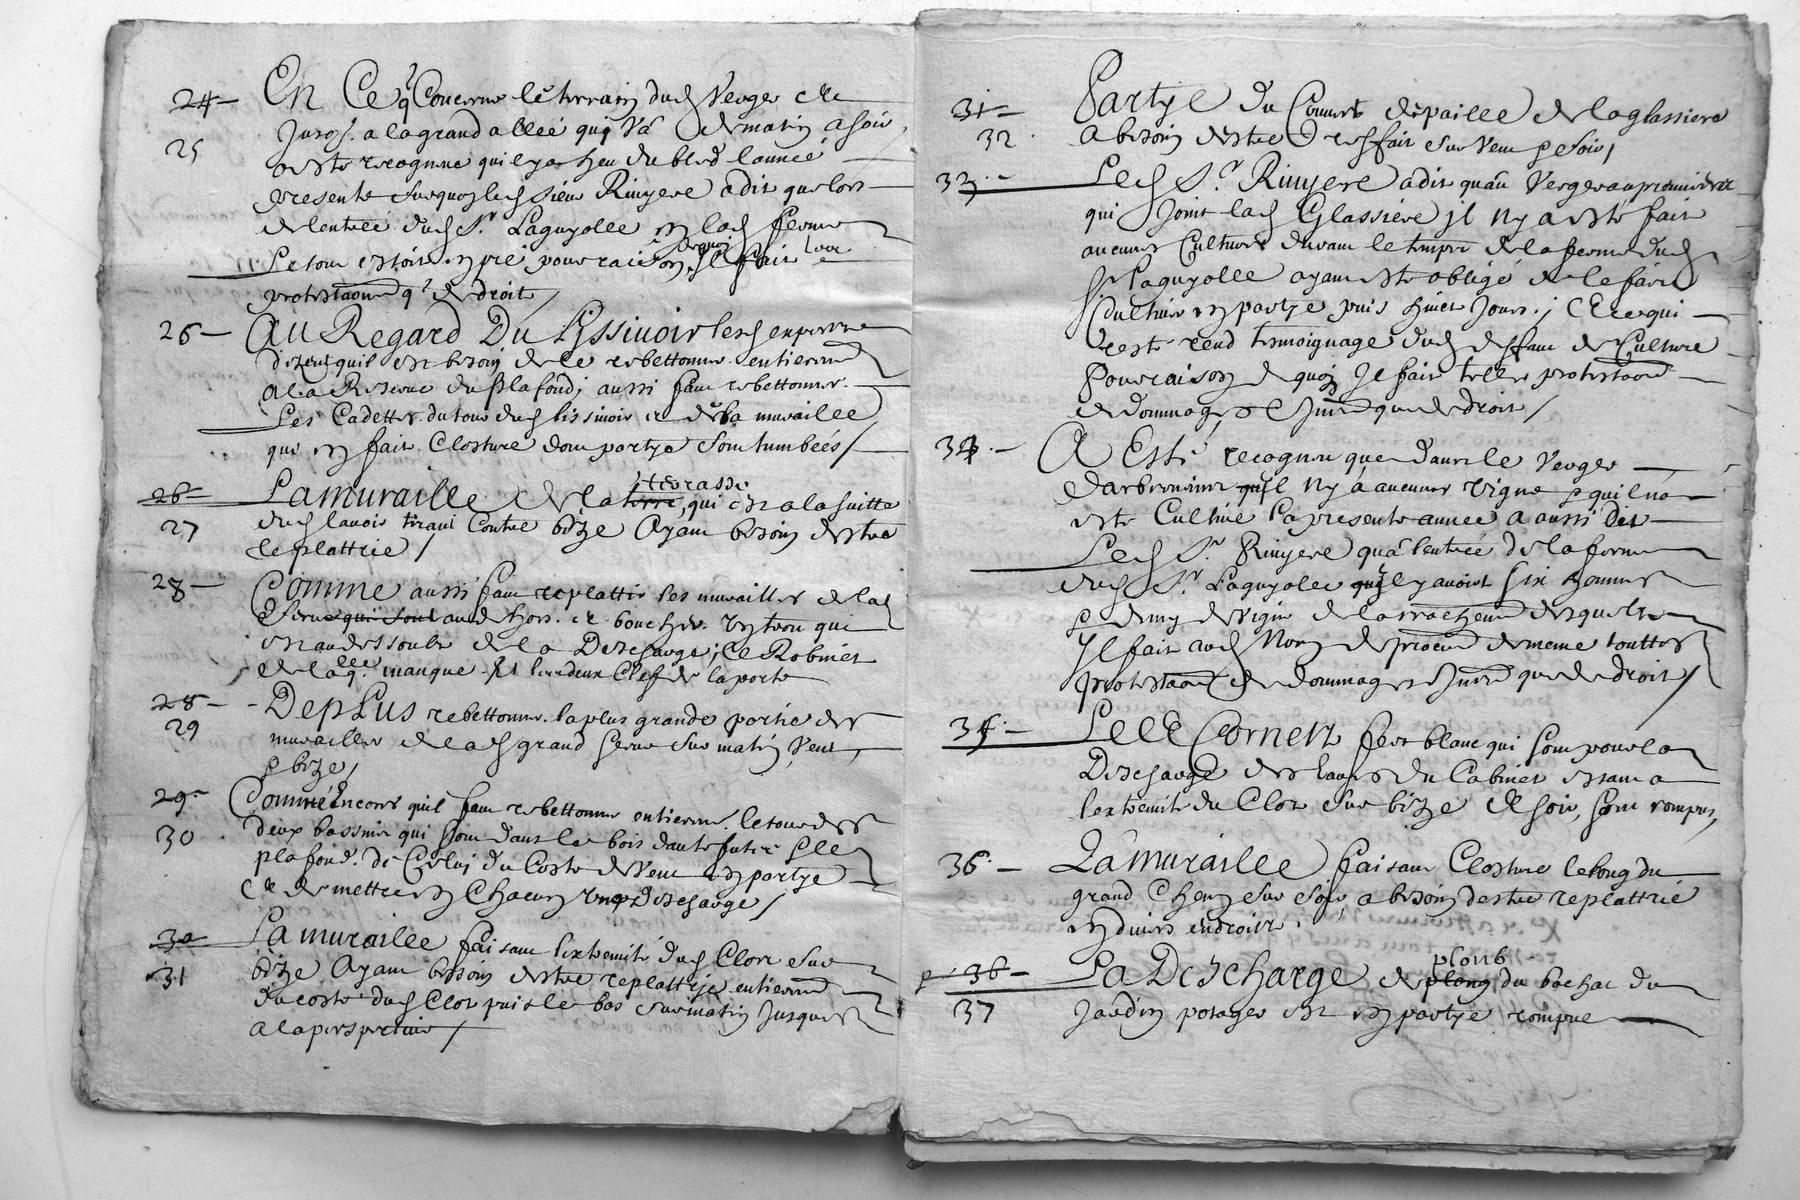 24 En Ce qe Concerne le terrain dud Verger &
25 jusqs. a la grand allée qui va de matin a soir,
a esté recognue quil y a heu du bled lannée
presente surquoy led sieur Rivyere a dit que lors
de lentrée dud Sr. Laguyolle en lad ferme
Le tout estoit en pré pour raison dequoy Il fait
protestaōns qe. de droit /
26 Au Regard Du Lissivoir lesd expertz
dizent quil est bezoin de le rebettonner entierement
a la Rezerve du plafond; aussi faut rebettonner
Les Cadettes du tour dud lissivoir et de la muraille
qui en fait Closture dont partye sont tumbées /
26 La muraille de la terre terrasse, qui est a la suitte
27 dud lavoir tirant Contre bize Ayant bezoin destre
replattrie /
28 Comme aussi faut replattir les murailles de lad
serve qui sont au dehors et boucher un trou qui
est au dessoubz de la Descharge; Ce Robinet
de laqlle. manque et les deux Clef de la porte
28 Deplus rebettonner la plus grande partie des
29 murailles de lad grand serve sur matin, Vent,
& bize /
29 Comme Encores quil faut rebettonner entierement le tour des
30 deux bassins qui sont dans le bois d'aute futée & le
plafond de Celuy du Costé de Vent en partye
& de mettre en Chacun une descharge /
30 La muraille faisant lextremité dud Clos sur
31 bize Ayant bezoin destre replattrie entierement
du costé dud Clos puis le bas sur matin jusques
a la perspective /
31 Partye du Couvert de paille de la glassiere
32 a bezoin destre resfait sur Vent & soir /
33 Led Sr. Rivyere a dit quau Verger
qui joint lad Glassiére il ny a esté fait
aucunes Cultures durant le temps de la ferme dud
Sr Laguyolle ayant esté obligé de le faire
Cultiver en partye puis huict jours; & Ce qui
reste rend temoignage dud deffaut de Culture
Pour raison de quoy Il fait telles protestaōns
de dommages & que de droit /
34 A Esté recognu que dans le Verger
darbres nins quil Ny a aucunes vigne & quil na
esté Cultivé la presente année a aussi dit
Led Sr. Rivyere qua lentrée de la ferme
dud Sr. Laguyolle quil y avoit six hommes
& demy de vigne de larrachement desquelles
Il fait aud Nom de procureur de meme touttes
protestaōns de dommages que de droit /
35 Le Cornetz fert blanc qui sont pour la
Descharge des Eaux du Cabinet estant a
lextremité du Clos sur bize & soir, sont rompus,
36 La muraille faisant Closture le long du
grand Chemin sur soir, a bezoin destre replattrié
en divers endroitz.
36 La Descharge de plong plonb du bachat du
37 jardin potager est en partye rompue